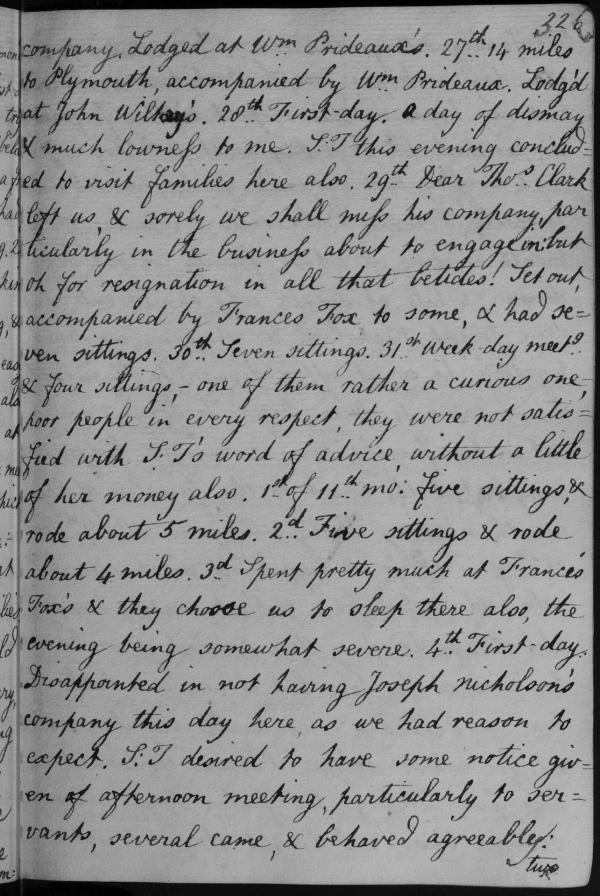 226
company. Lodged at Wm Prideaux's. 27th 14 miles
to Plymouth, accompanied by Wm Prideaux. Lodg'd
at John Wilkey's. 28th First-day. a day of dismay
& much lowness to me. S:T this evening conclud=
ed to visit families here also. 29th Dear Thos. Clark
left us, & sorely we shall miss his company, par
ticularly in the business about to engage in: but
oh for resignation in all that betides! Set out,
accompanied by Frances Fox to some, & had se=
ven sittings. 30th Seven sittings. 31st Week-day meetg
& four sittings,- one of them rather a curious one,
poor people in every respect, they were not satis=
fied with S:T's word of advice, without a little
of her money also. 1st of 11th mo: five sittings, &
rode about 5 miles. 2d Five sittings & rode
about 4 miles. 3d Spent pretty much at Frances
Fox's & they choose us to sleep there also, the
evening being somewhat severe. 4th First-day.
Disappointed in not having Joseph Nicholson's
company this day here, as we had reason to
expect. S:T desired to have some notice giv=
en of afternoon meeting, particularly to ser=
vants, several came, & behaved agreeably:
two